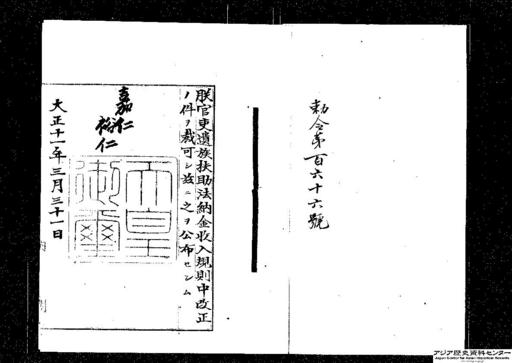 勅令第百六十六號
朕官吏遺族扶助法納金收入規則中改正
ノ件ヲ裁可シ茲ニ之ヲ公布セシム
嘉仁
裕仁
天皇御璽
大正十一年三月三十一日
アジア歴史資料センター
Japan Center for Asian Historical Records